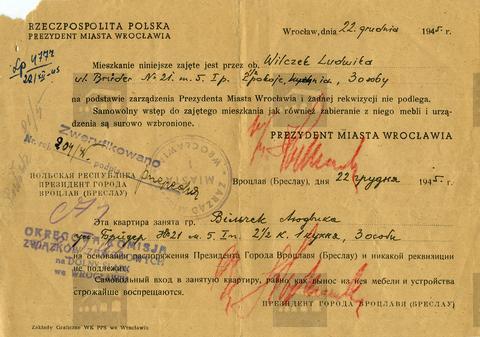 RZECZPOSPOLITA POLSKA
PREZYDENT MIASTA WROCŁAWIA
Wrocław, dnia 22. grudnia 1945 r.
Lp 4777
Mieszkanie niniejsze zajęte jest przez ob. Wilczek Ludwika
ul. Brüder No 21. m. 5. I p. 2½ pokoje, kuchnia, 3 osoby
na podstawie zarządzenia Prezydenta Miasta Wrocławia i żadnej rekwizycji nie podlega.
Samowolny wstęp do zajętego mieszkania jak również zabieranie z niego mebli i urządzenia są surowo wzbronione.
PREZYDENT MIASTA WROCŁAWIA
Zweryfikowano
204
ZARZĄD
WROCŁAW
ПОЛЬСКАЯ РЕСПУБЛИКА
ПРЕЗИДЕНТ ГОРОДА
ВРОЦЛАВ (БРЕСЛАУ)
Вроцлав (Бреслау), дня 22 грудня 1945 г.
Эта квартира занята гр.
21 м. 5. 2½ к. 1 кухня, 3 особы
на основании распоряжения Президента Города Вроцлав (Бреслау) и никакой реквизиции не подлежит.
Самовольный вход в занятую квартиру, равно как вынос из нея мебели и устройства строжайше воспрещаются.
ПРЕЗИДЕНТ ГОРОДА ВРОЦЛАВЯ (БРЕСЛАУ)
OKRĘGOWA KOMISJA
ZWIĄZKÓW ZAWODOWYCH
na DOLNY ŚLĄSK
we WROCŁAWIU
Zakłady Graficzne WK PPS we Wrocławiu